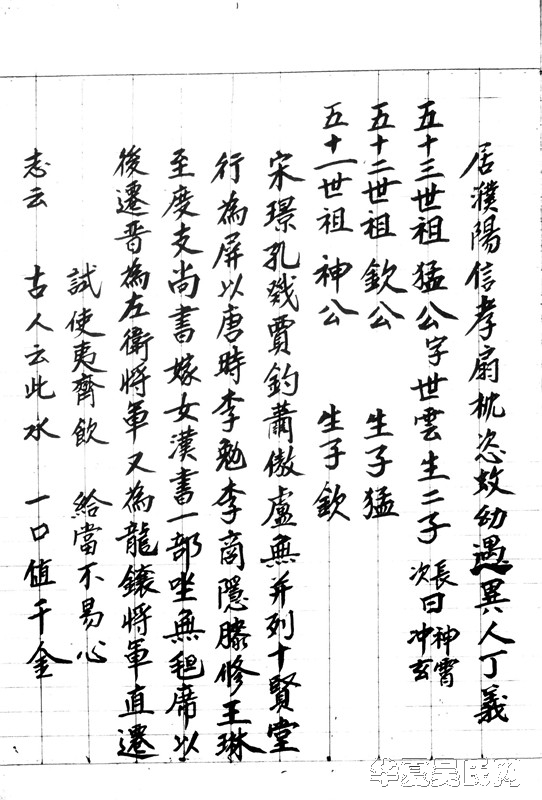 志云 古人云此水 一口值千金
試使夷齊飲 給當不易心
後遷晉為左衛將軍又為龍鑲將軍直遷
至度支尚書嫁女漢書一部坐無毡席以
行為屏以唐時李勉李商隱滕修王琳
宋璟孔戣賈鈞蕭倣盧無并列十賢堂
五十一世祖神公 生子欽
五十二世祖欽公 生子猛
五十三世祖猛公字世雲生二子 長次曰神霄冲玄
居濮陽信孝扇枕恣蚊幼遇異人丁義
华夏吴氏网